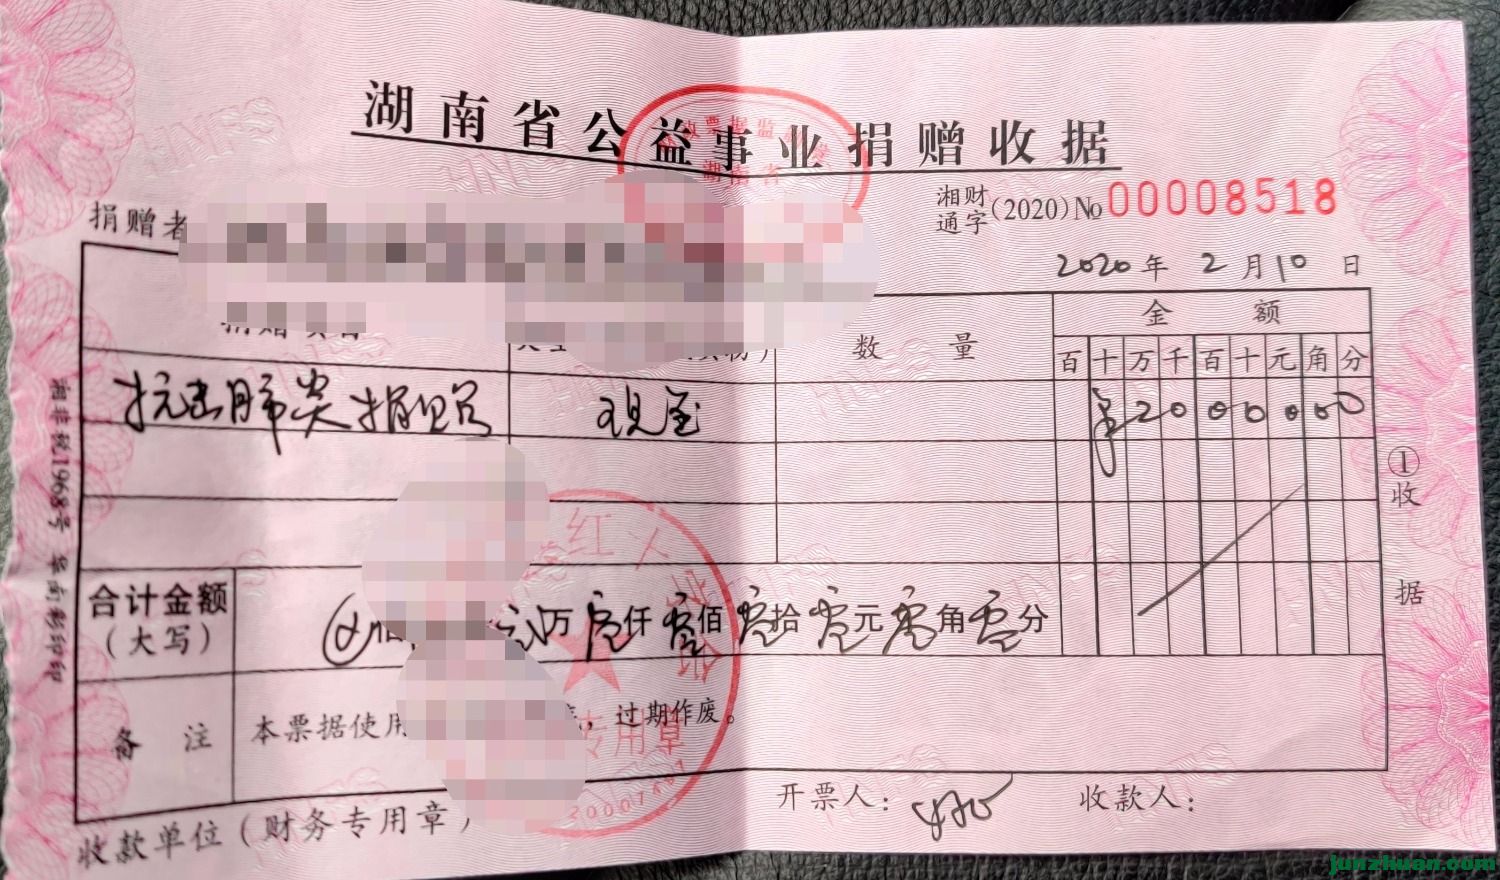 湖南省公益事业捐赠收据
湘财通字(2020)No 00008518
捐赠者
2020年 2月10日
数 量 金 额
百 十 万 千 百 十 元 角 分
抗击肺炎捐 现金 ¥2000000
合计金额(大写) 万零仟零佰零拾零元零角零分
备 注 本票据使用 ,过期作废。
专用章
收款单位(财务专用章)
开票人: 收款人:
①收据
湘非税1968号
junzhuan.com